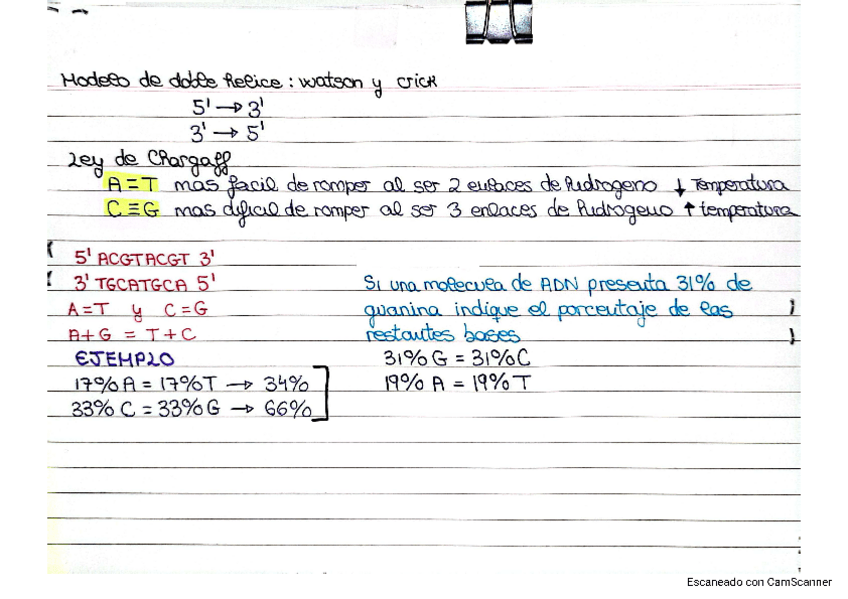 Modelo de doble helice : watson y crick
5' → 3'
3' → 5'
Ley de Chargaff
A = T mas facil de romper al ser 2 enlaces de hidrogeno ↓ Temperatura
C ≡ G mas dificil de romper al ser 3 enlaces de hidrogeno ↑ temperatura
5' ACGTACGT 3'
3' TGCATGCA 5'
A = T y C = G
A + G = T + C
EJEMPLO
17% A = 17% T → 34%
33% C = 33% G → 66%
Si una molecula de ADN presenta 31% de
guanina indique el porcentaje de las
restantes bases
31% G = 31% C
19% A = 19% T
Escaneado con CamScanner